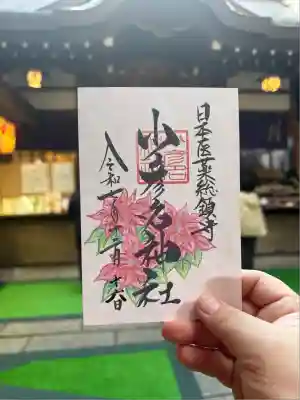 日本医薬総鎮守
少彦名神社
令和六年二月十六日